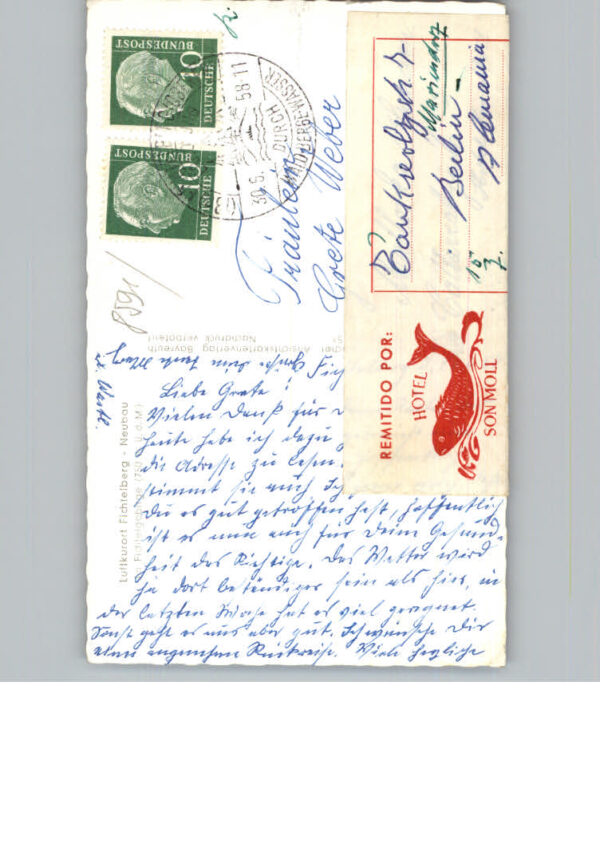 10
DEUTSCHE
BUNDESPOST
10
DEUTSCHE
BUNDESPOST
30.6.58-11
DURCH
WALD BERGE WASSER
Fräulein
Grete Weber
Berlin-
Mariendorf
Alemania
REMITIDO POR:
HOTEL
SON MOLL
Ansichtskartenverlag Bayreuth
Nachdruck verboten
Luftkurort Fichtelberg - Neubau
Liebe Grete!
Vielen Dank für
heute habe ich dazu
die Adresse zu lesen.
stimmt sie auch. Ich
Du es gut getroffen hast, hoffentlich
ist es nun auch für Deine Gesund-
heit das Richtige. Das Wetter wird
ja dort beständiger sein als hier, in
der letzten Woche hat es viel geregnet.
Sonst geht es uns aber gut. Ich wünsche Dir
einen angenehmen Rückreise. Viele herzliche